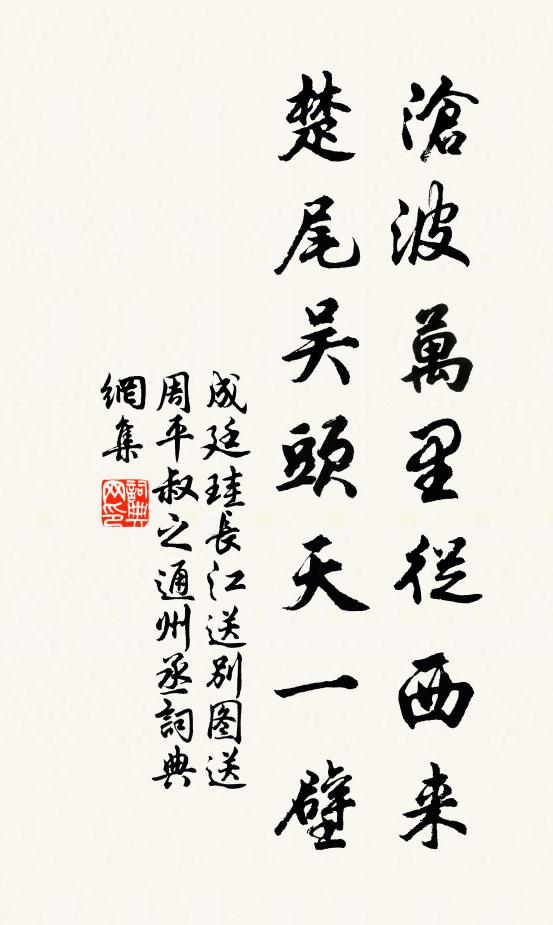 滄波萬里從西来
楚尾吴頭天一壁
成廷珪長江送別图送
周平叔之通州丞詞典
網集
詞典
网印